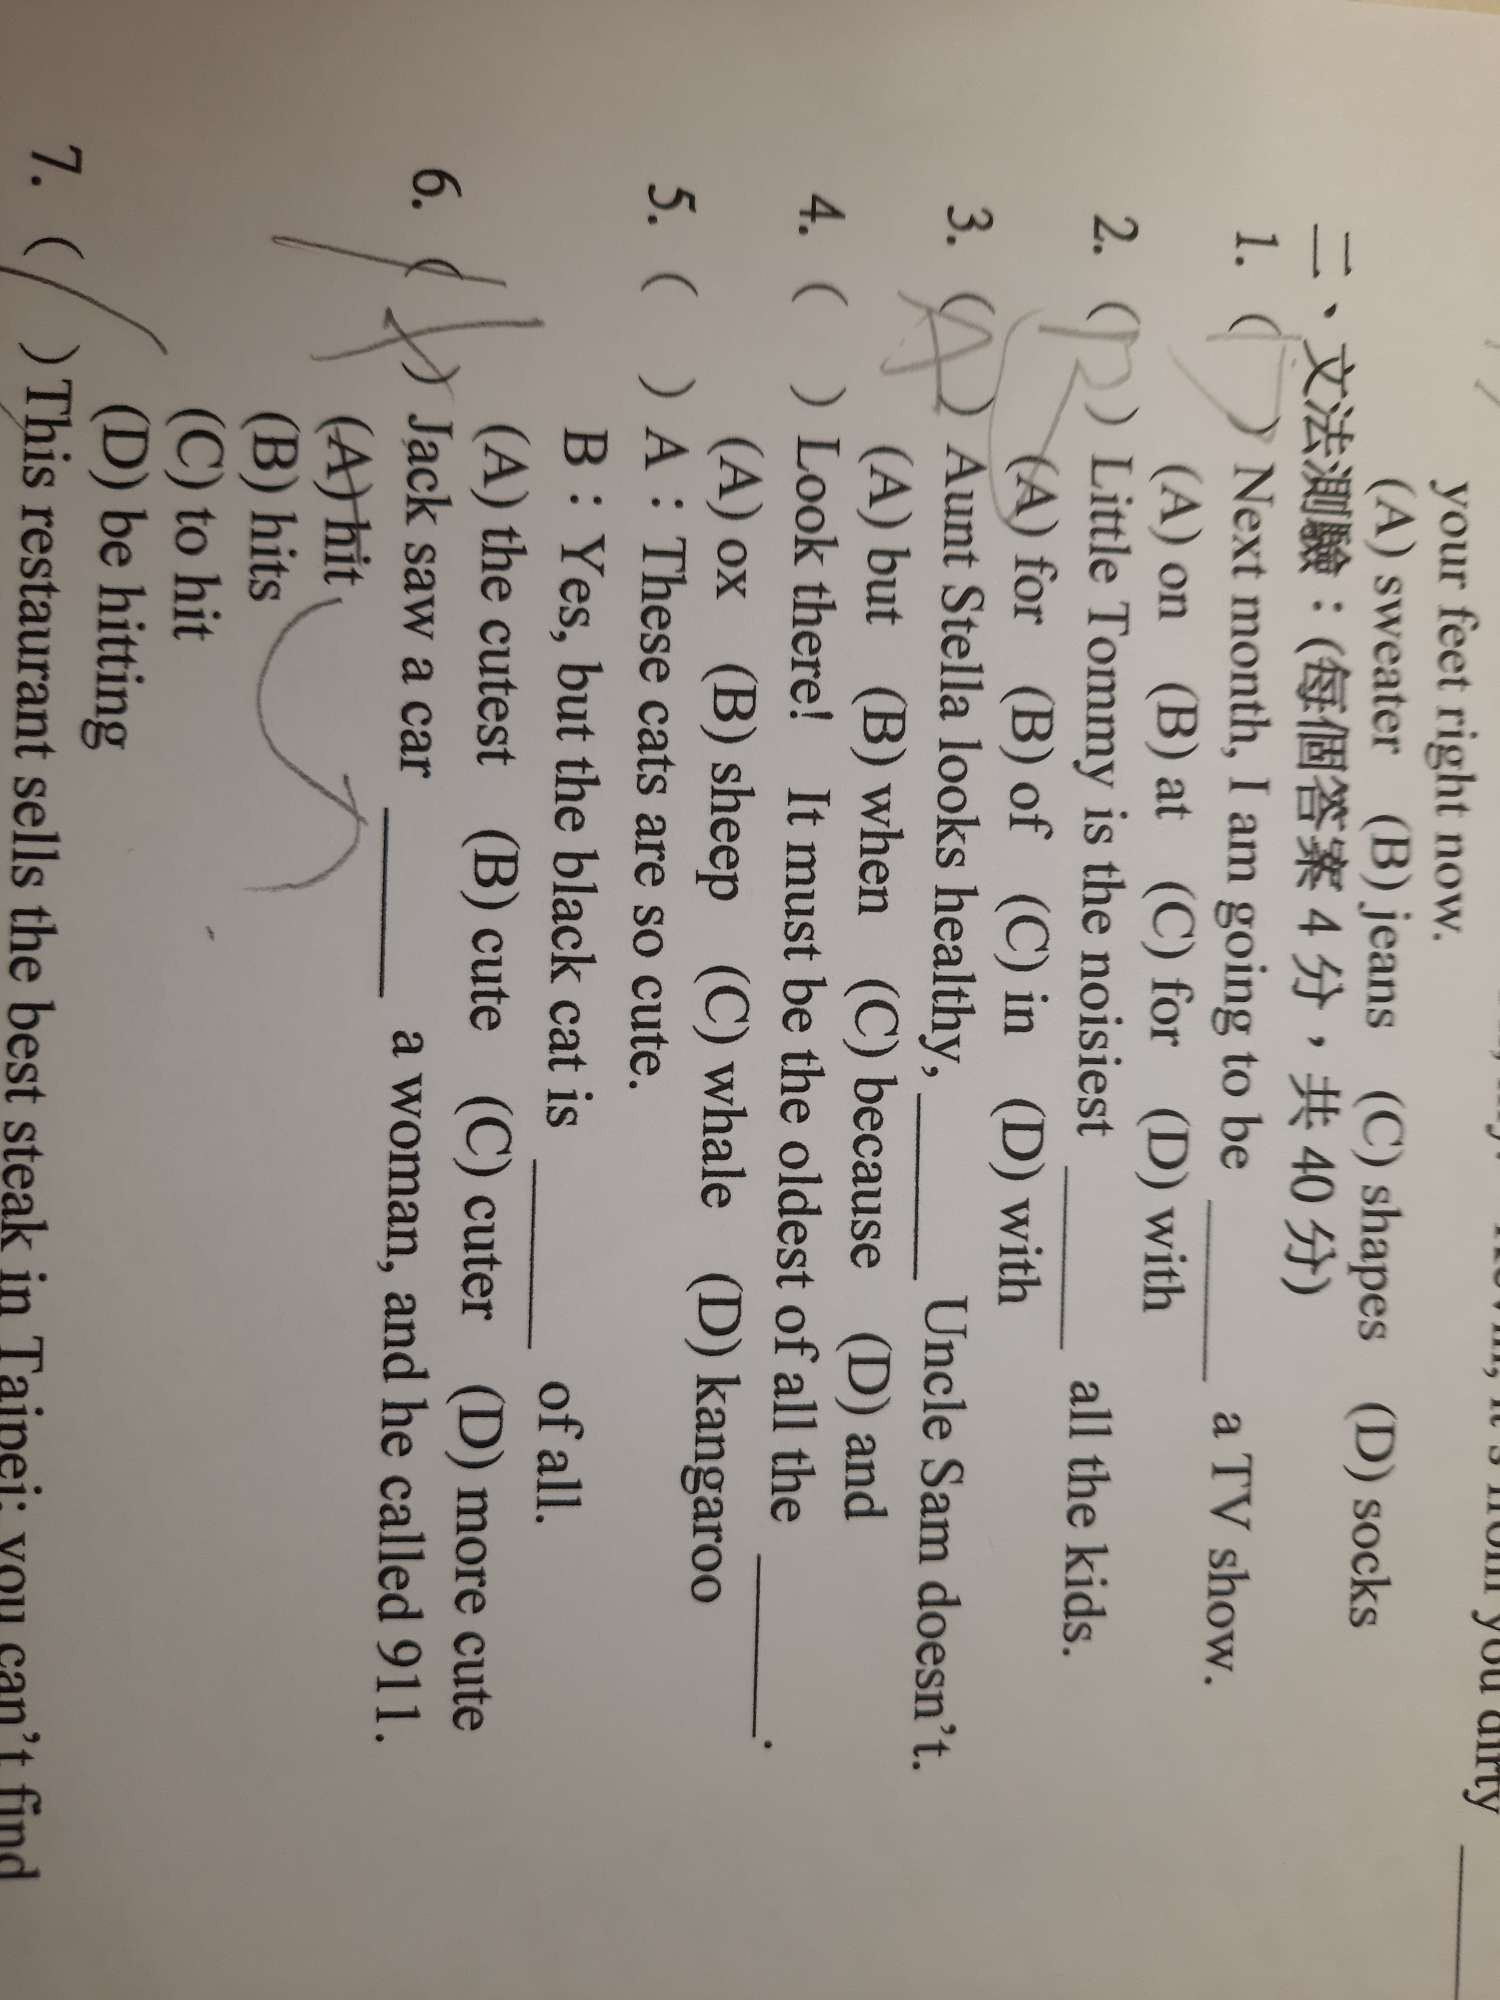 you dirty
your feet right now.
(A) sweater (B) jeans (C) shapes (D) socks
二、文法測驗：(每個答案 4 分，共 40 分)
1. ( ) Next month, I am going to be ______ a TV show.
(A) on (B) at (C) for (D) with
2. ( ) Little Tommy is the noisiest ______ all the kids.
(A) for (B) of (C) in (D) with
3. (A) Aunt Stella looks healthy, ______ Uncle Sam doesn't.
(A) but (B) when (C) because (D) and
4. ( ) Look there! It must be the oldest of all the ______.
(A) ox (B) sheep (C) whale (D) kangaroo
5. ( ) A：These cats are so cute.
B：Yes, but the black cat is ______ of all.
(A) the cutest (B) cute (C) cuter (D) more cute
6. ( ) Jack saw a car ______ a woman, and he called 911.
(A) hit
(B) hits
(C) to hit
(D) be hitting
7. ( ) This restaurant sells the best steak in Taipei; you can't find